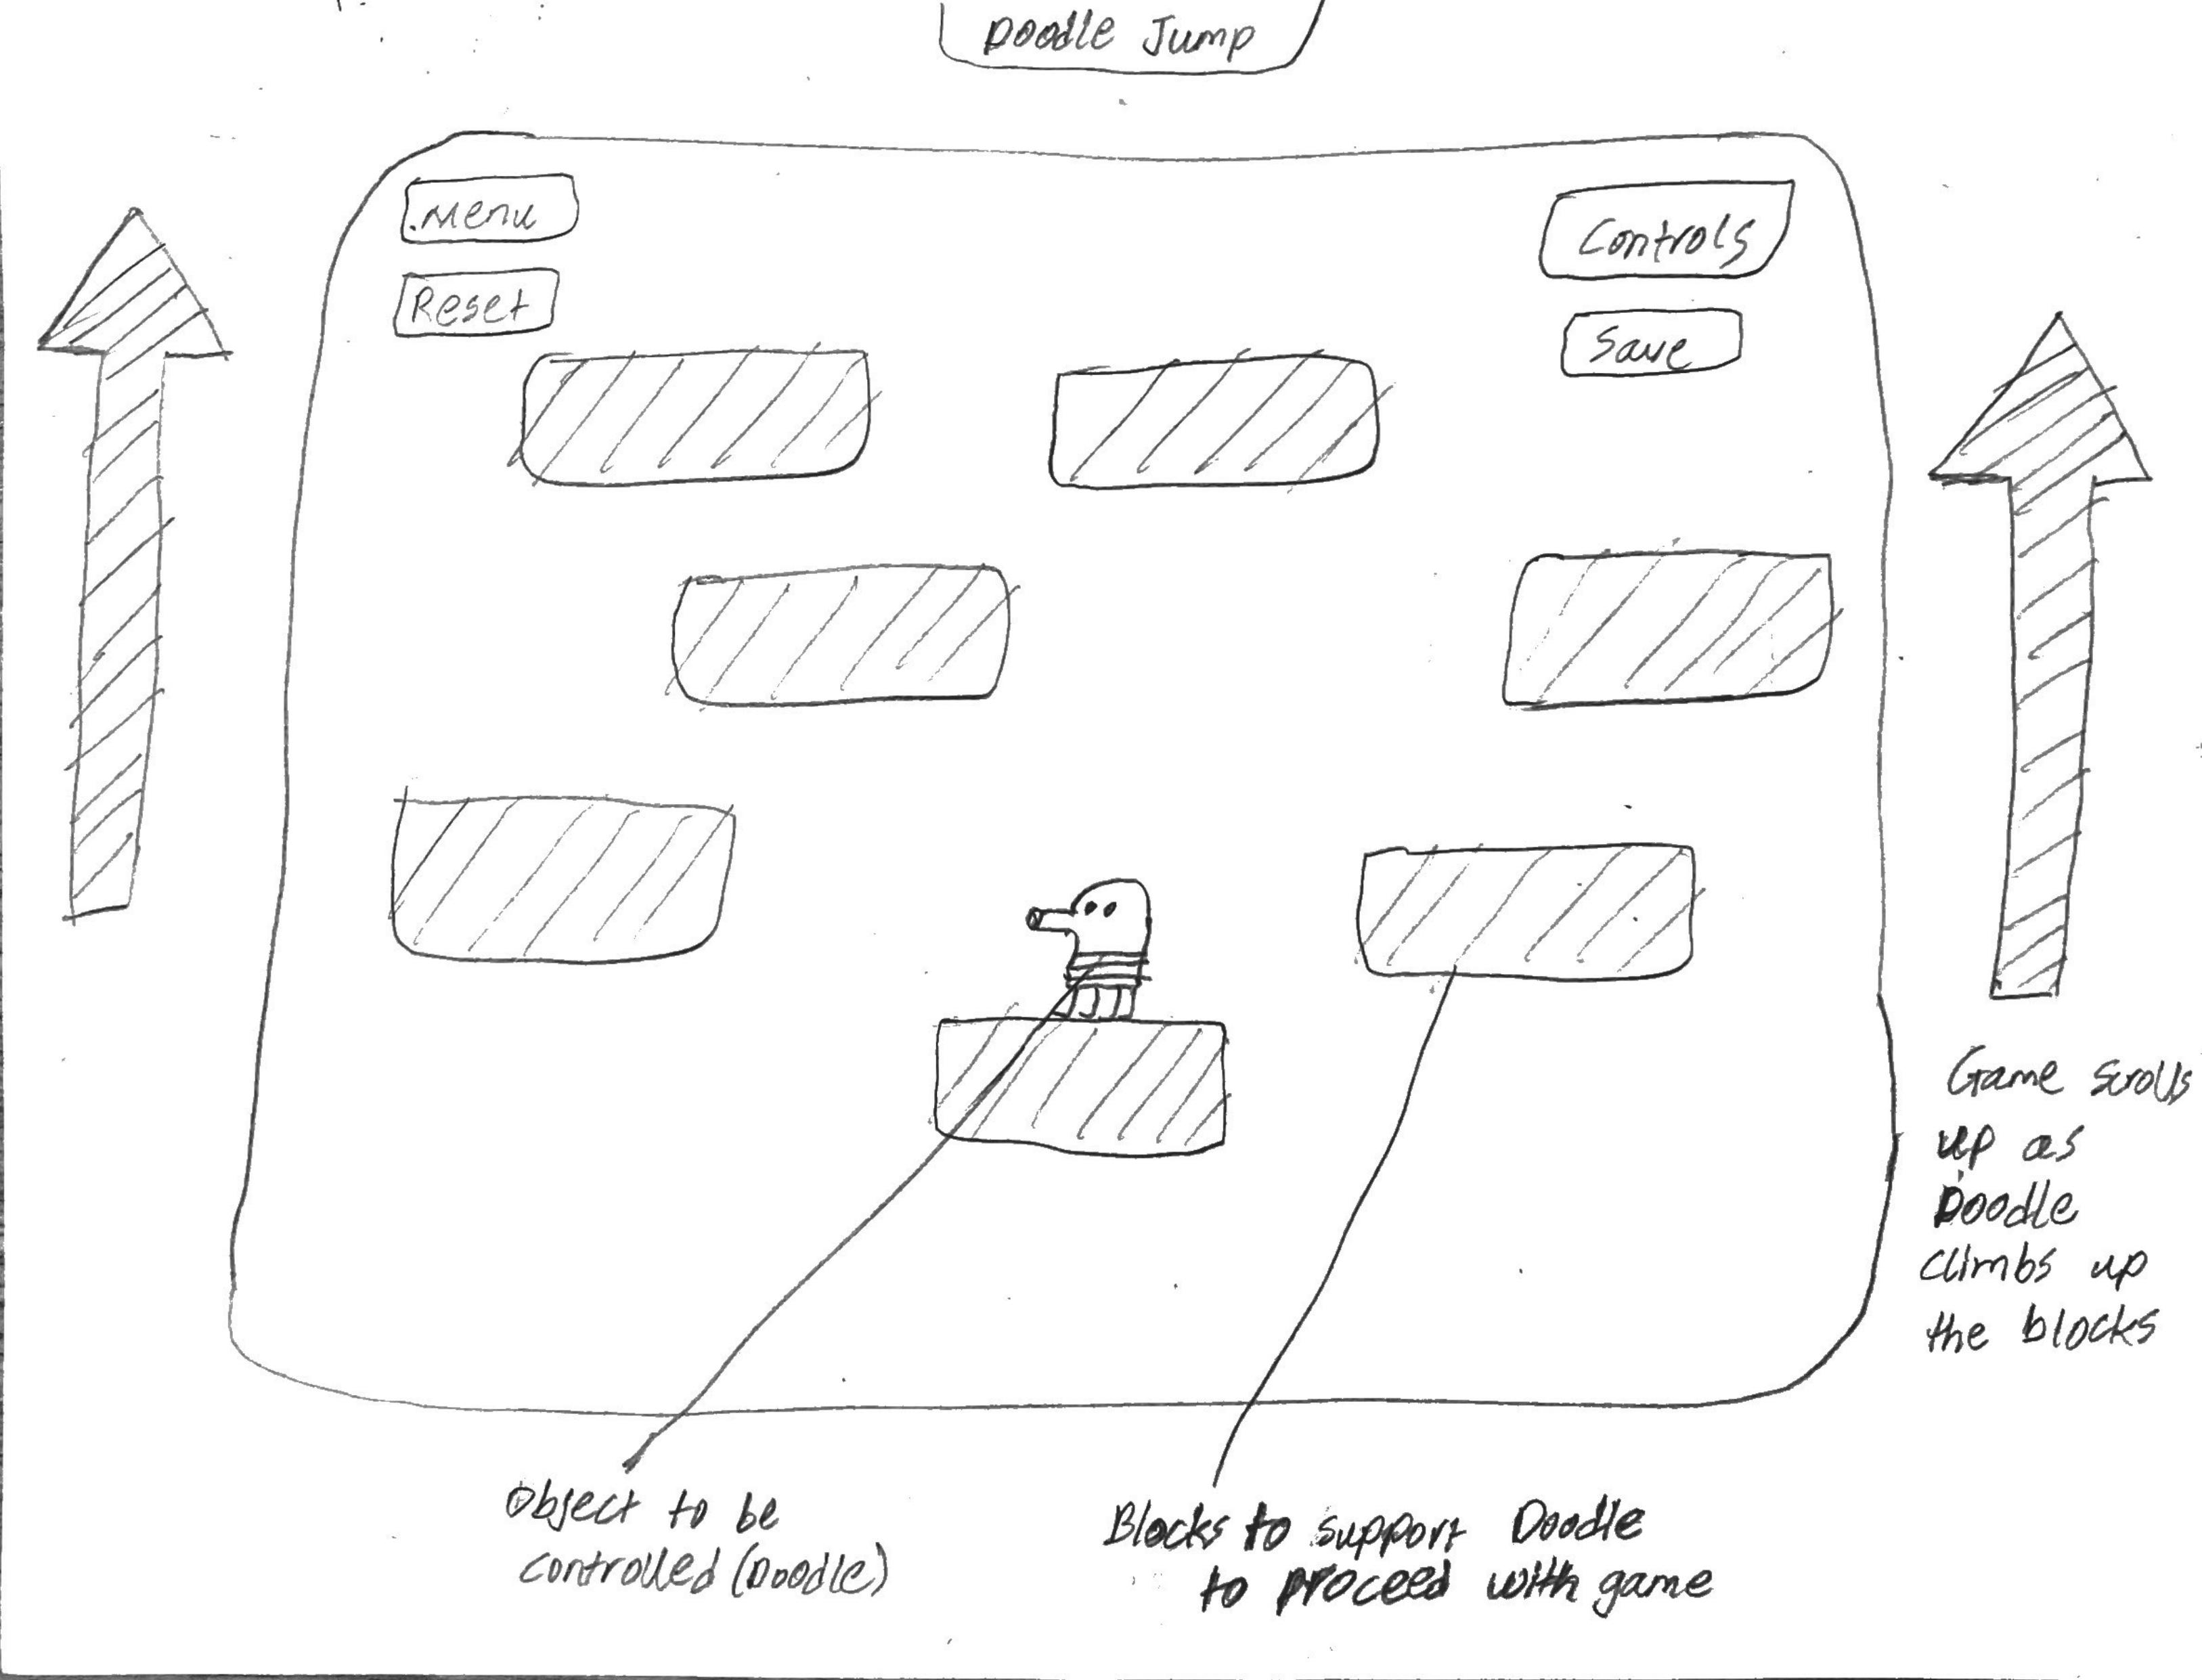 Doodle Jump
Menu
Controls
Reset
Save
Game scrolls
up as
Doodle
climbs up
the blocks
Object to be
controlled (Doodle)
Blocks to support Doodle
to proceed with game